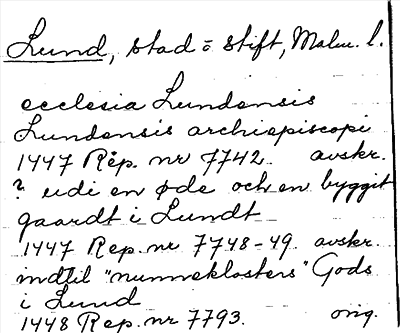 Lund, stad o stift, Malm. l.
ecclesia Lundensis
Lundensis archiepiscopi
1447 Rep. nr 7742. avskr.
? udi en øde och en byggit
gaardt i Lundt
1447 Rep. nr 7748-49. avskr.
indtil "nunneklosters" Gods
i Lund
1448 Rep. nr 7793. orig.